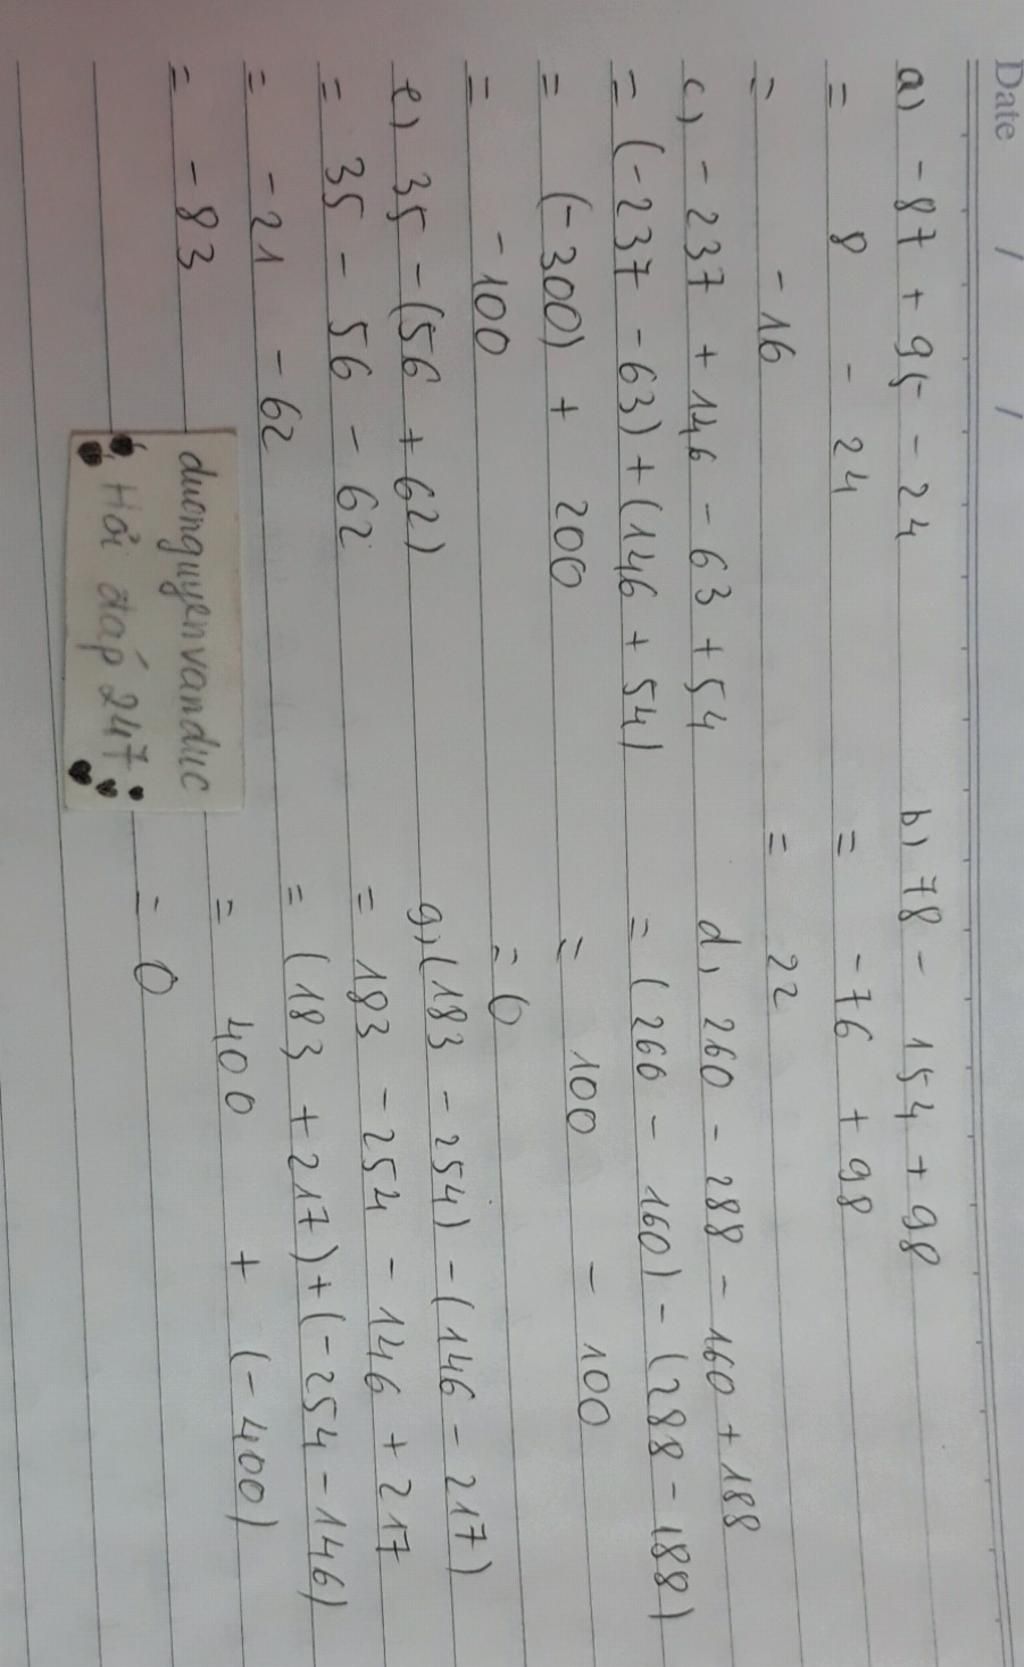 Date / /
a) -87 + 95 - 24
= 8 - 24
= -16
b) 78 - 154 + 98
= -76 + 98
= 22
c) -237 + 146 - 63 + 54
= (-237 - 63) + (146 + 54)
= (-300) + 200
= -100
d) 260 - 288 - 160 + 188
= (260 - 160) - (288 - 188)
= 100 - 100
= 0
e) 35 - (56 + 62)
= 35 - 56 - 62
= -21 - 62
= -83
g) (183 - 254) - (146 - 217)
= 183 - 254 - 146 + 217
= (183 + 217) + (-254 - 146)
= 400 + (-400)
= 0
duonguyenvanduc
Hỏi đáp 247